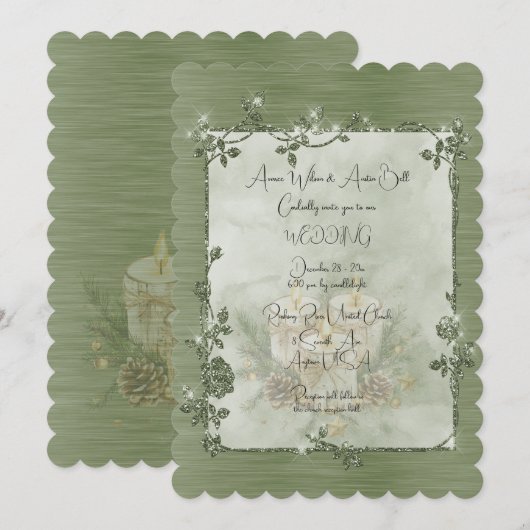 Aimee Wilson & Austin Bell
Cordially invite you to our
WEDDING
December 28 - 20xx
6:30 pm by candlelight
Rushing River United Church
8 Seventh Ave
Anytown USA
Reception will follow in
the church reception hall